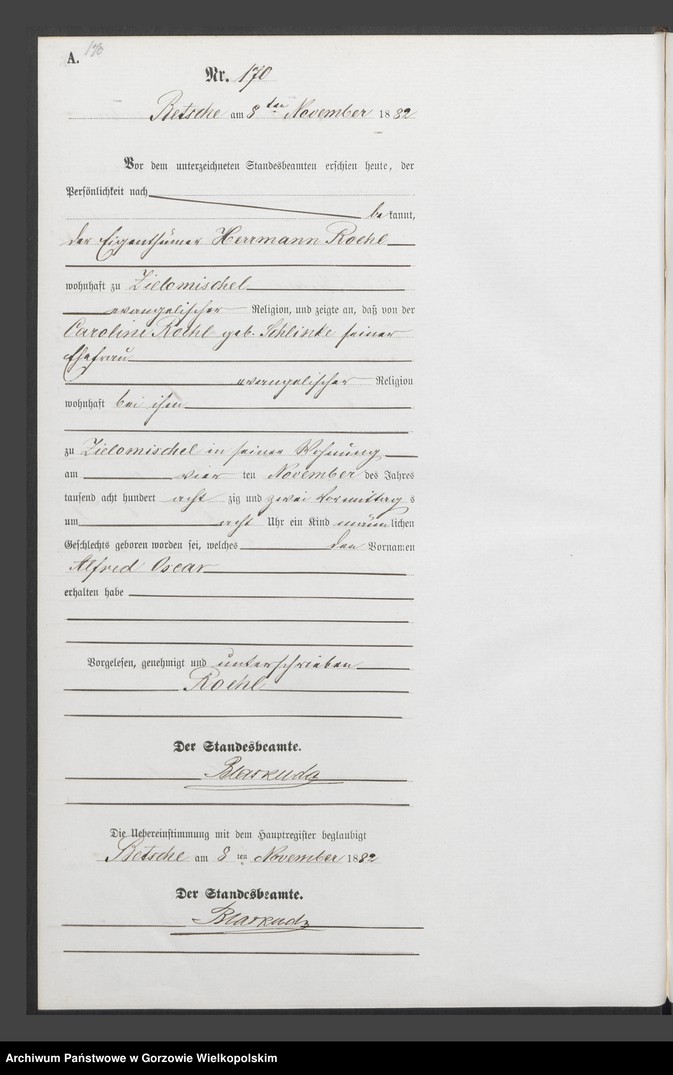 A. 170
Nr. 170
Betsche am 8ten November 1882
Vor dem unterzeichneten Standesbeamten erschien heute, der
Persönlichkeit nach
be kannt,
der Eigenthümer Herrmann Roehl
wohnhaft zu Zielomischel
evangelischer Religion, und zeigte an, daß von der
Caroline Roehl geb. Schlinke seiner
Ehefrau
evangelischer Religion
wohnhaft bei ihm
zu Zielomischel in seiner Wohnung
am vier ten November des Jahres
tausend acht hundert acht zig und zwei Vormittag s
um acht Uhr ein Kind männ lichen
Geschlechts geboren worden sei, welches den Vornamen
Alfred Oscar
erhalten habe
Vorgelesen, genehmigt und unterschrieben
Roehl
Der Standesbeamte.
Die Uebereinstimmung mit dem Hauptregister beglaubigt
Betsche am 8 ten November 1882
Der Standesbeamte.
Archiwum Państwowe w Gorzowie Wielkopolskim